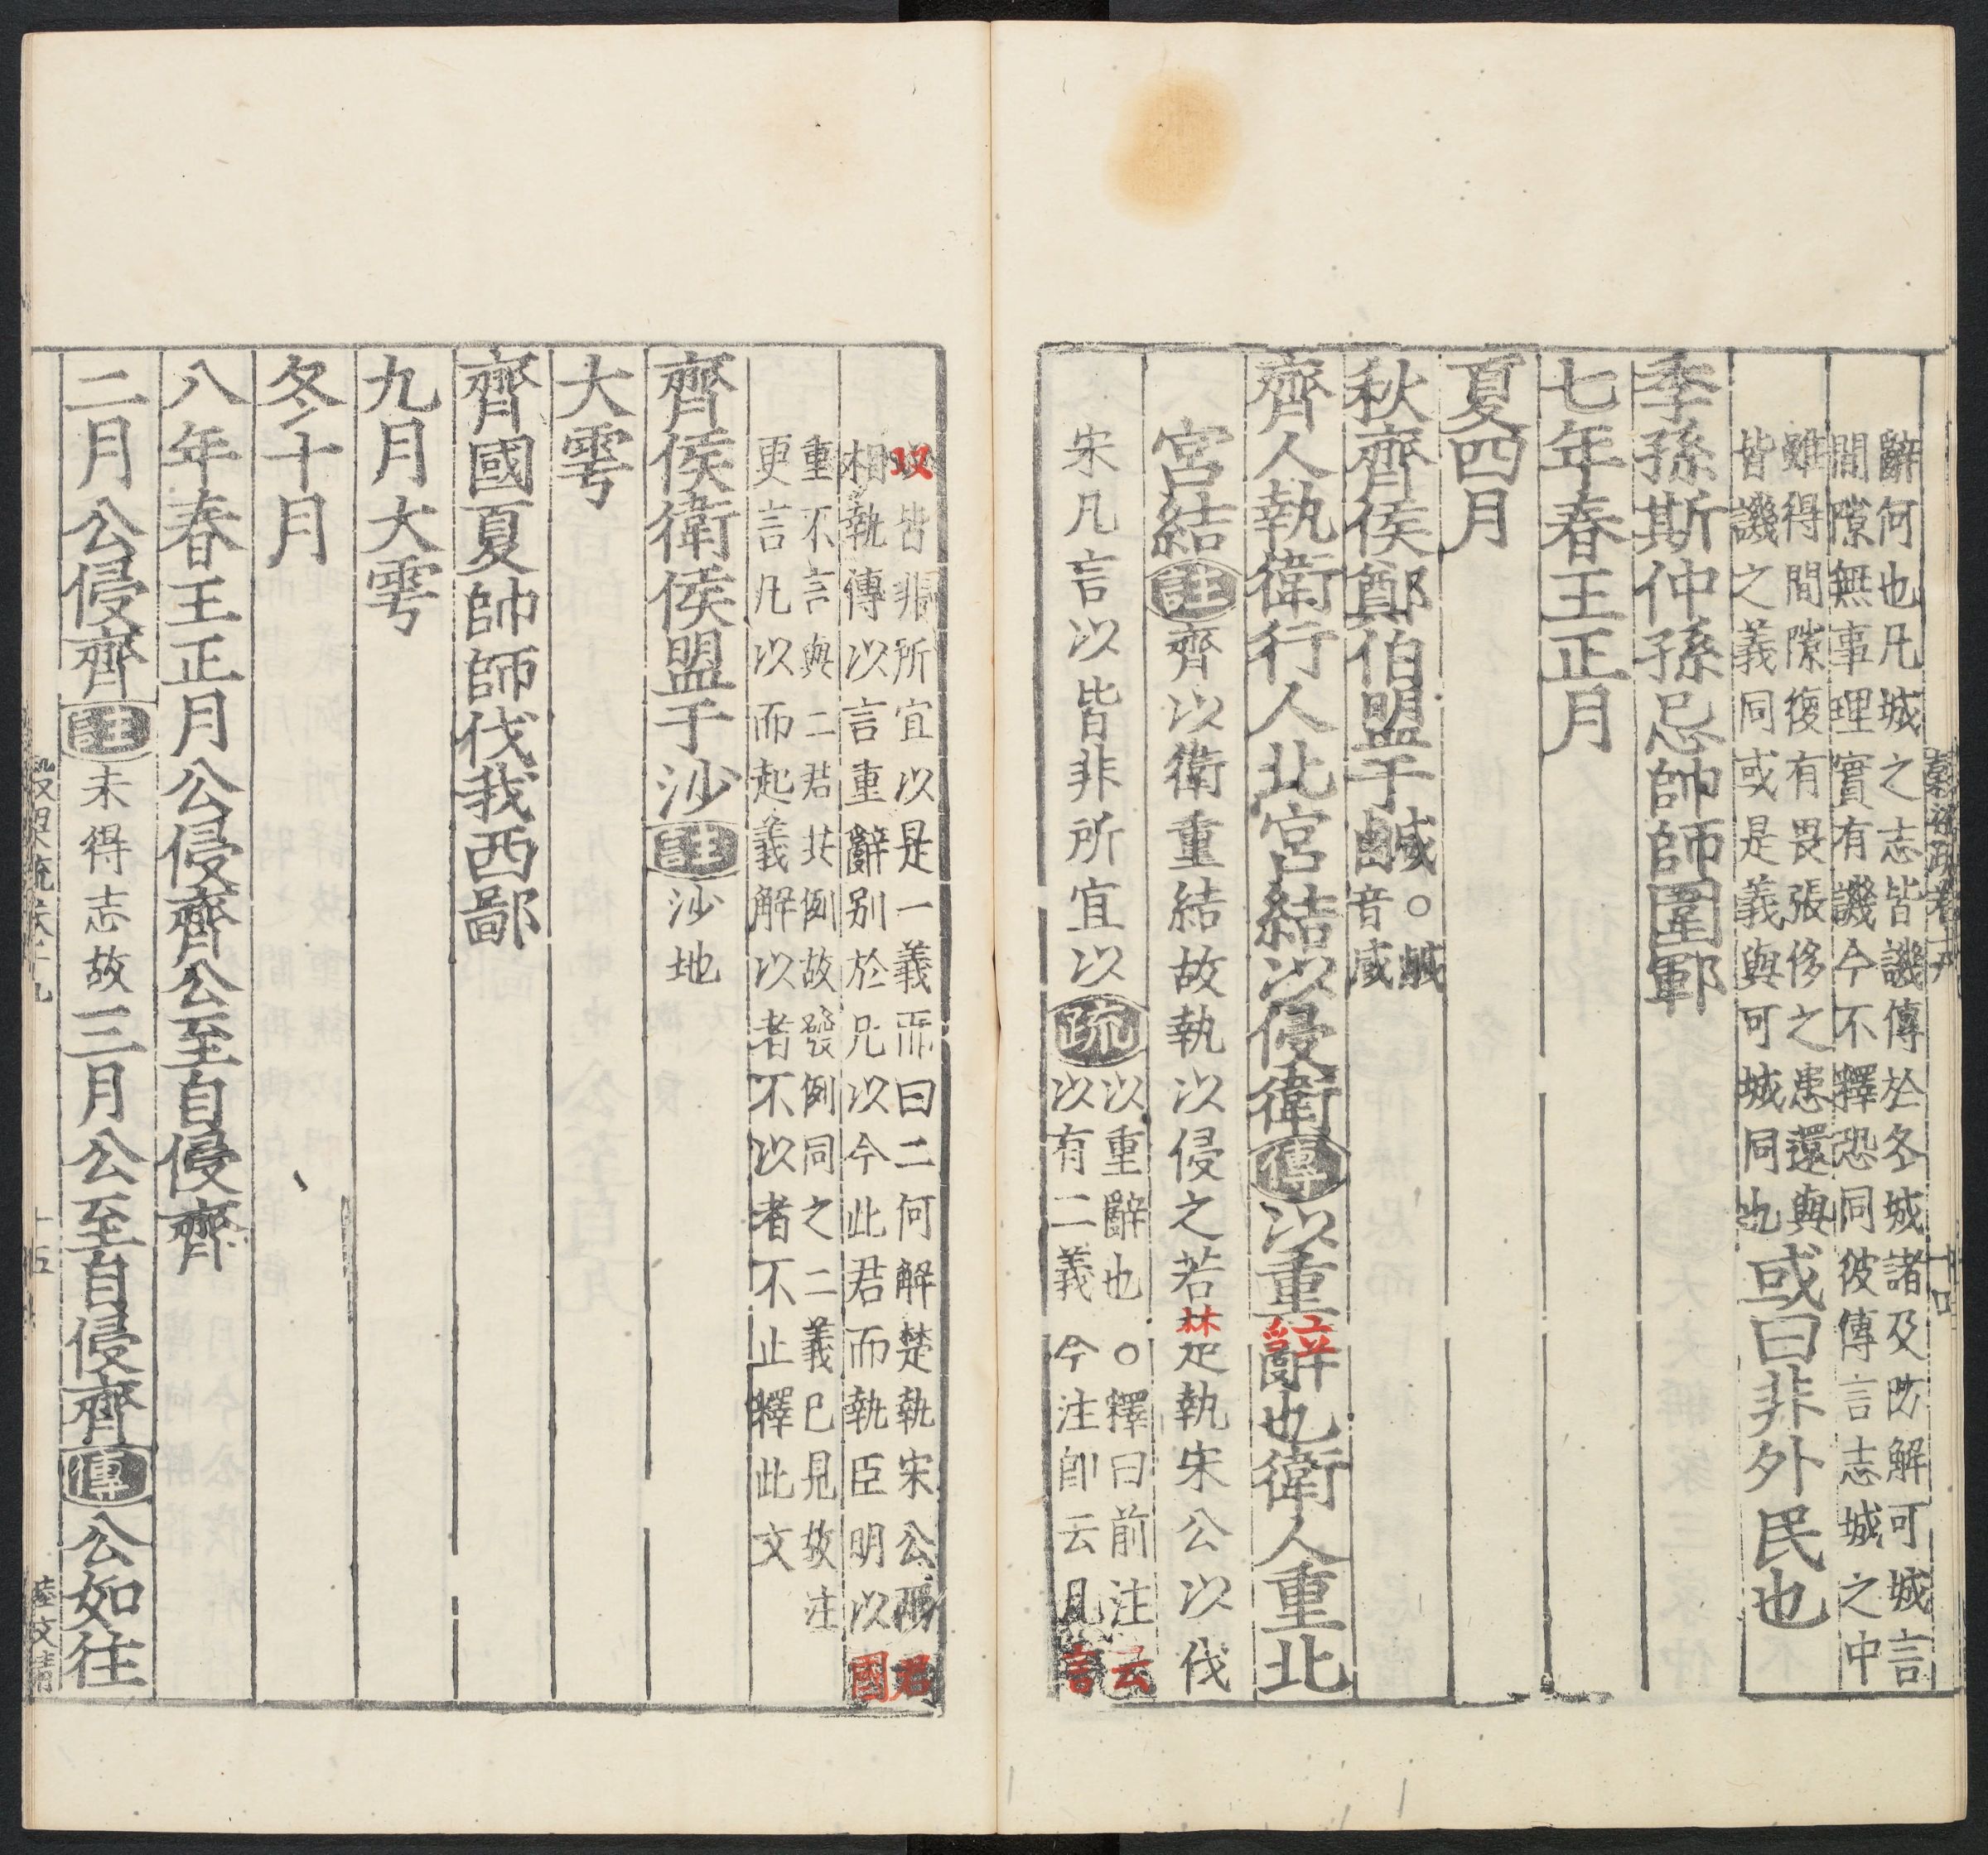 辭何也凡城之志皆譏傳於冬城諸及防解可城言
間隙無事理實有譏今不釋恐同彼傳言志城之中
雖得間隙復有畏張侈之患還與
皆譏之義同或是義與可城同也
或曰非外民也
季孫斯仲孫忌帥師圍鄆
七年春王正月
夏四月
秋齊侯鄭伯盟于鹹○鹹音咸
齊人執衛行人北宮結以侵衛傳以重辭也衛人重北
宮結註齊以衛重結故執以侵之若楚執宋公以伐
宋凡言以皆非所宜以疏
以重辭也○釋曰前注云
以有二義今注即云凡言
以皆非所宜以是一義而曰二何解楚執宋公兩君
相執傳以言重辭別於凡以今此君而執臣明以國
重不言與二君共例故發例同之二義已見故注
更言凡以而起義解以者不以者不止釋此文
齊侯衛侯盟于沙註沙地
大雩
齊國夏帥師伐我西鄙
九月大雩
冬十月
八年春王正月公侵齊公至自侵齊
二月公侵齊註未得志故三月公至自侵齊傳公如往
十五